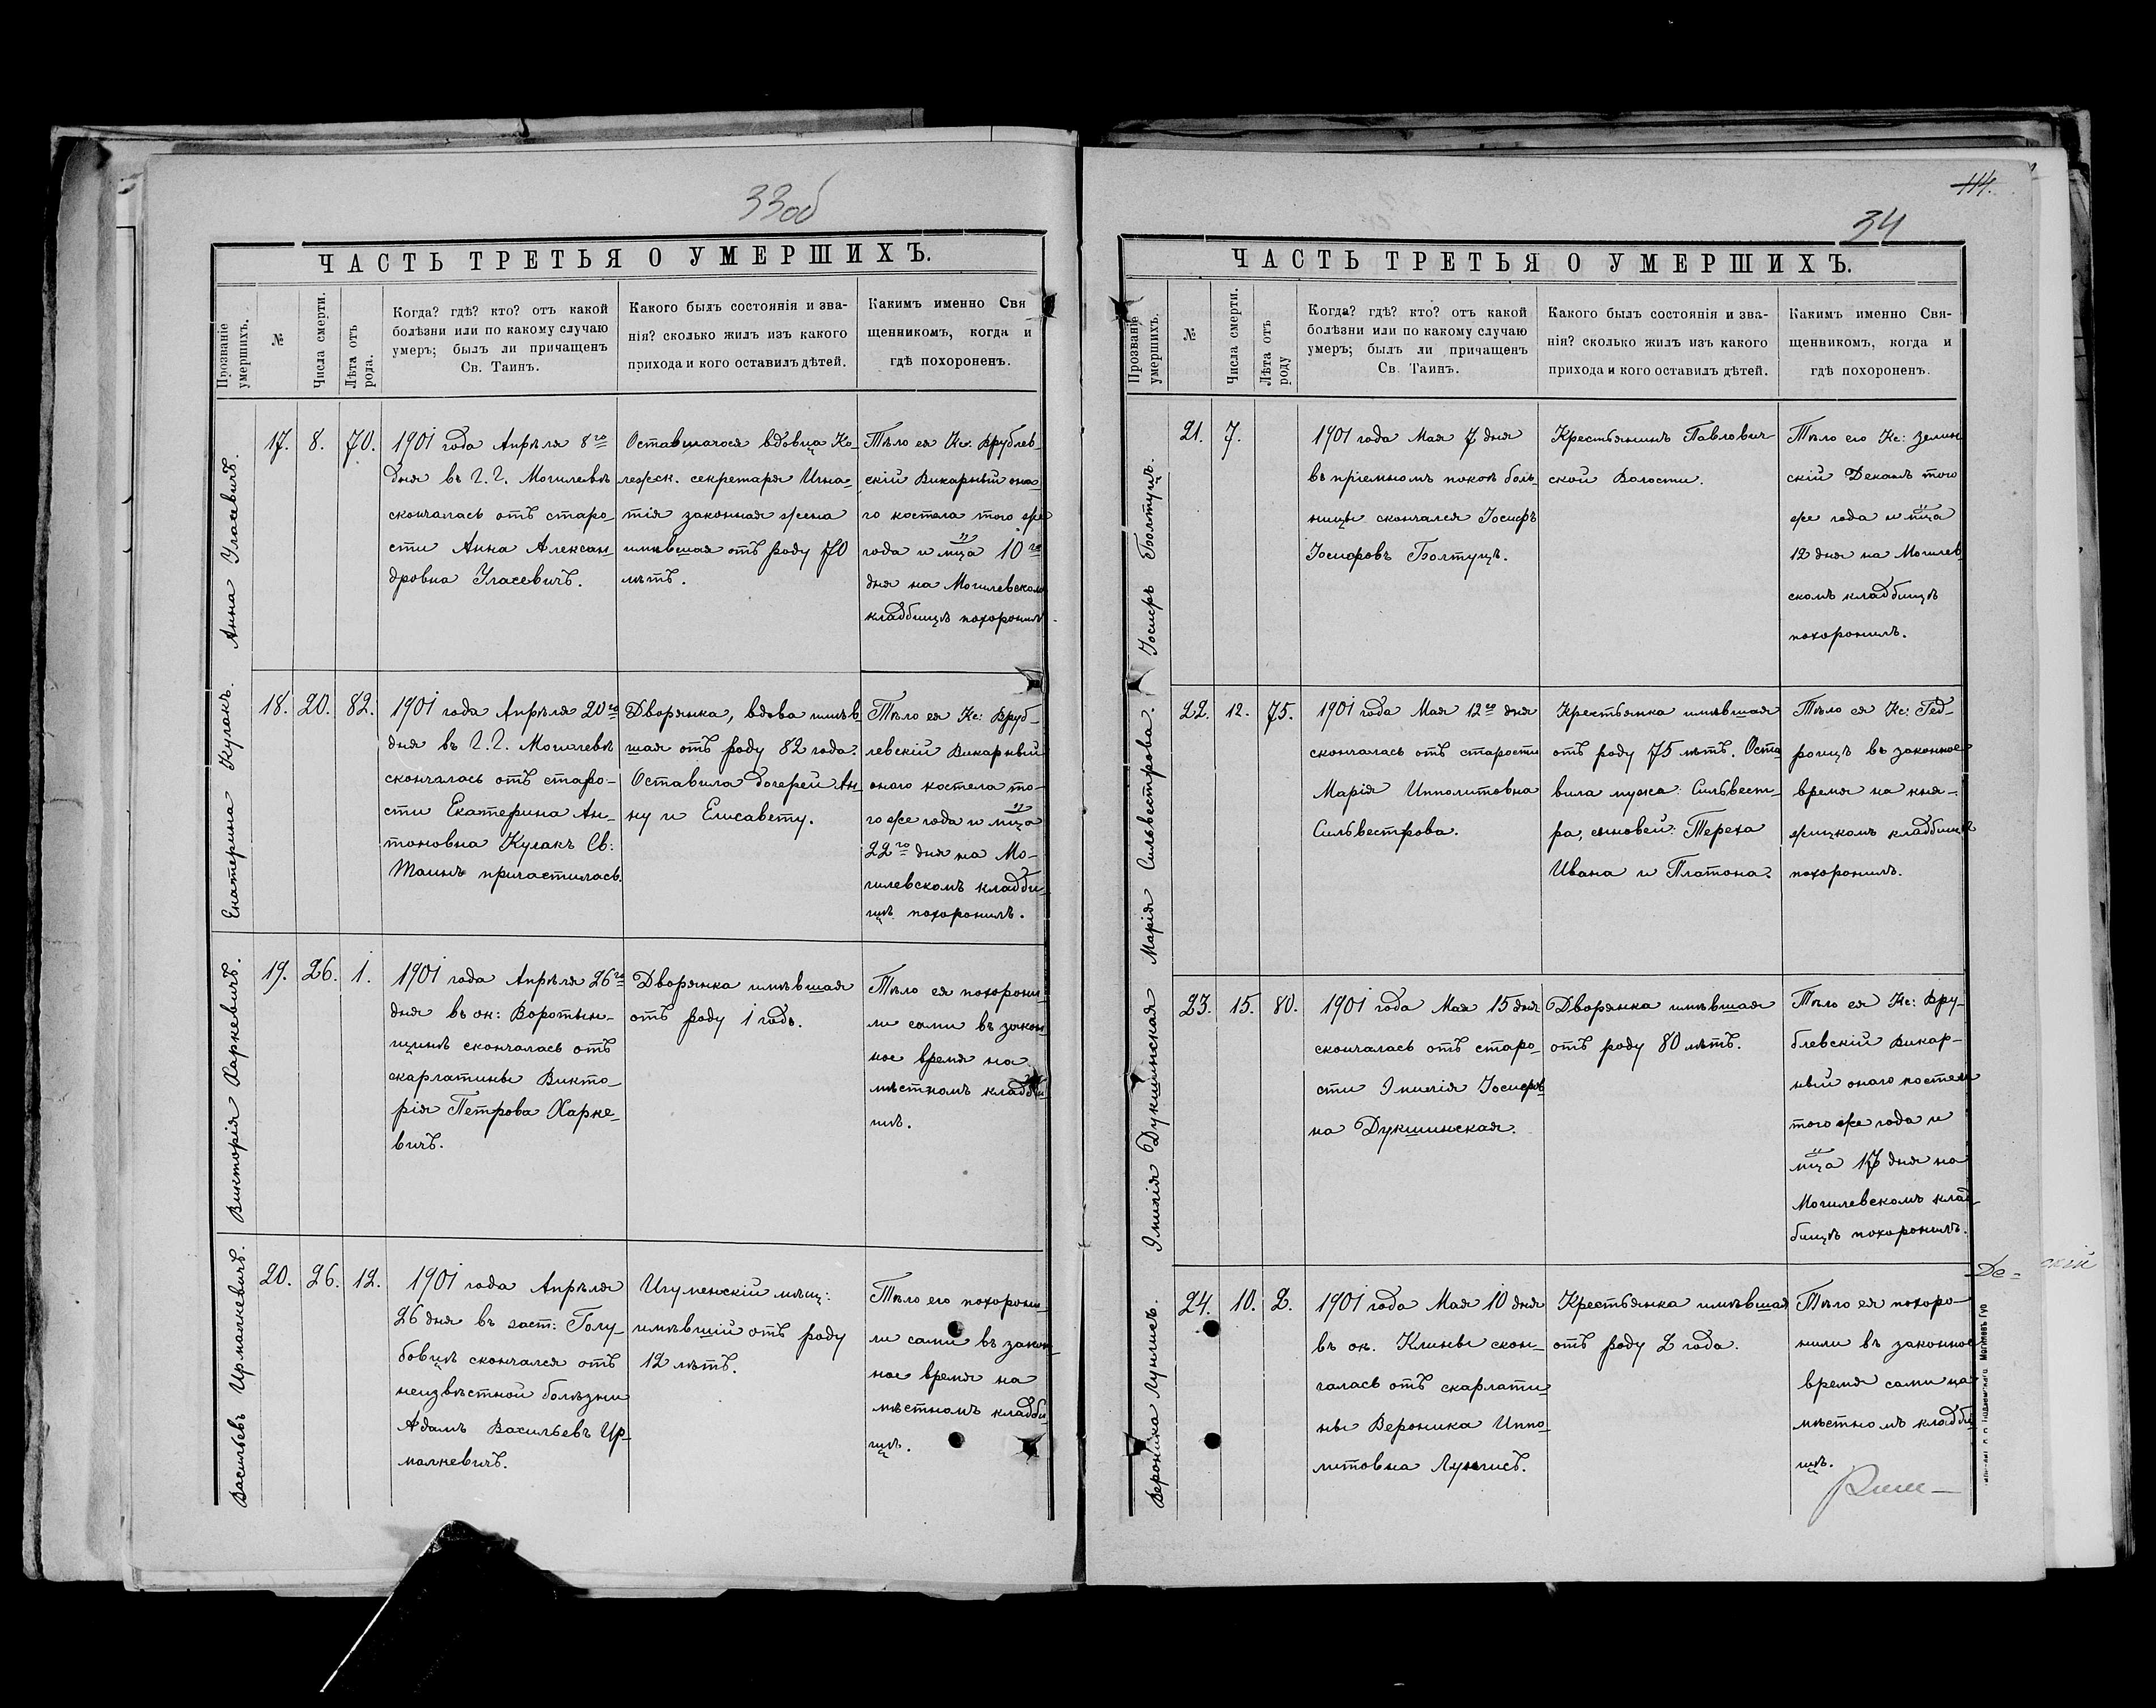 33об
ЧАСТЬ ТРЕТЬЯ О УМЕРШИХЪ.
Прозваніе
умершихъ.
№
Числа смерти.
Лѣта отъ
рода.
Когда? гдѣ? кто? отъ какой
болѣзни или по какому случаю
умеръ; былъ ли причащенъ
Св. Таинъ.
Какого былъ состоянія и зва-
нія? сколько жилъ изъ какого
прихода и кого оставилъ дѣтей.
Какимъ именно Свя
щенникомъ, когда и
гдѣ похороненъ.
Анна Уласевичъ.
17.
8.
70.
1901 года Апрѣля 8го
дня въ г. г. Могилевѣ
скончалась отъ старо-
сти Анна Алексан-
дровна Уласевичъ.
Оставшагося вдовца Ко-
лежск. секретаря Игна-
тія законная жена
имѣвшая отъ роду 70
лѣтъ.
Тѣло ея Кс: Врублев-
скій Викарный она-
го костела того же
года и мца 10го
дня на Могилевскомъ
кладбищѣ похоронилъ.
Екатерина Кулакъ.
18.
20.
82.
1901 года Апрѣля 20го
дня въ г. г. Могилевѣ
скончалась отъ старо-
сти Екатерина Ан-
тоновна Кулакъ Св:
Таинъ причастилась.
Дворянка, вдова имѣв-
шая отъ роду 82 года.
Оставила дочерей Ан-
ну и Елисавету.
Тѣло ея Кс: Вруб-
левскій Викарный
онаго костела то-
го же года и мца
22го дня на Мо-
гилевскомъ кладби-
щѣ похоронилъ.
Викторія Харкевичъ.
19.
26.
1.
1901 года Апрѣля 26го
дня въ ок: Воротын-
щинѣ скончалась отъ
скарлатины Викто-
рія Петрова Харке-
вичъ.
Дворянка имѣвшая
отъ роду 1 годъ.
Тѣло ея похорони-
ли сами въ закон-
ное время на
мѣстномъ кладби-
щѣ.
Васильевъ Ирмалкевичъ.
20.
26.
12.
1901 года Апрѣля
26 дня въ заст: Голу-
бовцѣ скончался отъ
неизвѣстной болѣзни
Адамъ Васильевъ Ир-
малкевичъ.
Игуменскій мѣщ:
имѣвшій отъ роду
12 лѣтъ.
Тѣло его похорони-
ли сами въ закон-
ное время на
мѣстномъ кладби-
щѣ.
114.
34
ЧАСТЬ ТРЕТЬЯ О УМЕРШИХЪ.
Прозваніе
умершихъ.
№
Числа смерти.
Лѣта отъ
роду
Когда? гдѣ? кто? отъ какой
болѣзни или по какому случаю
умеръ; былъ ли причащенъ
Св. Таинъ.
Какого былъ состоянія и зва-
нія? сколько жилъ изъ какого
прихода и кого оставилъ дѣтей.
Какимъ именно Свя-
щенникомъ, когда и
гдѣ похороненъ.
Іосифъ Болтуцъ.
21.
7.
1901 года Мая 7 дня
въ пріемномъ покоѣ боль-
ницы скончался Іосифъ
Іосифовъ Болтуцъ.
Крестьянинъ Павлович-
ской Волости.
Тѣло его Кс: Зелин
скій Деканъ того
же года и мца
12 дня на Могилев
скомъ кладбищѣ
похоронилъ.
Марія Сильвестрова.
22.
12.
75.
1901 года Мая 12го дня
скончалась отъ старости
Марія Ипполитовна
Сильвестрова.
Крестьянка имѣвшая
отъ роду 75 лѣтъ. Оста
вила мужа: Сильвест-
ра, сыновей: Тереха
Ивана и Платона.
Тѣло ея Кс: Гед-
ройцъ въ законное
время на кня-
жицкомъ кладбищѣ
похоронилъ.
Дукшинская
23.
15.
80.
1901 года Мая 15 дня
скончалась отъ старо-
сти Іосифов
на Дукшинская.
Дворянка имѣвшая
отъ роду 80 лѣтъ.
Тѣло ея Кс: Вру-
блевскій Викар-
ный онаго костела
того же года и
мца 17 дня на
Могилевскомъ клад-
бищѣ похоронилъ.
Де-
скій
Вероника Лунгисъ.
24.
10.
2.
1901 года Мая 10 дня
въ ок. Клины скон-
чалась отъ скарлати-
ны Вероника Иппо-
литовна Лунгисъ.
Крестьянка имѣвшая
отъ роду 2 года.
Тѣло ея похоро-
нили въ законное
время сами на
мѣстномъ кладби
щѣ.
Могилевъ Губ